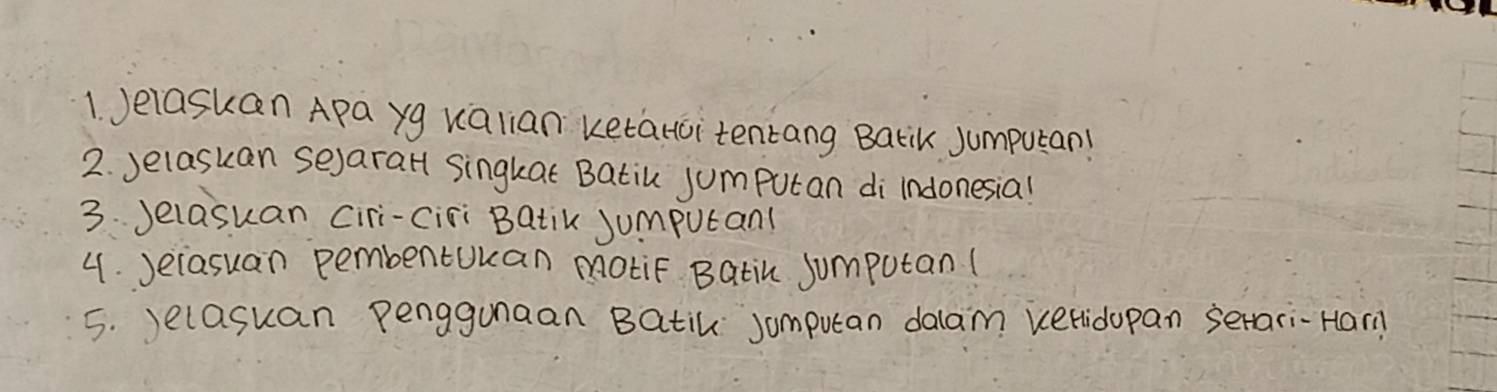 1. Jelaskan Apa yg kalian ketaHui tentang Batik Jumputan!
2. Jelaskan SejaraH Singkat Batik Jumputan di Indonesia!
3. Jelaskan Ciri-Ciri Batik Jumputan!
4. Jelaskan Pembentukan Motif Batik Jumputan!
5. Jelaskan Penggunaan Batik Jumputan dalam keHidupan SeHari-Hari!